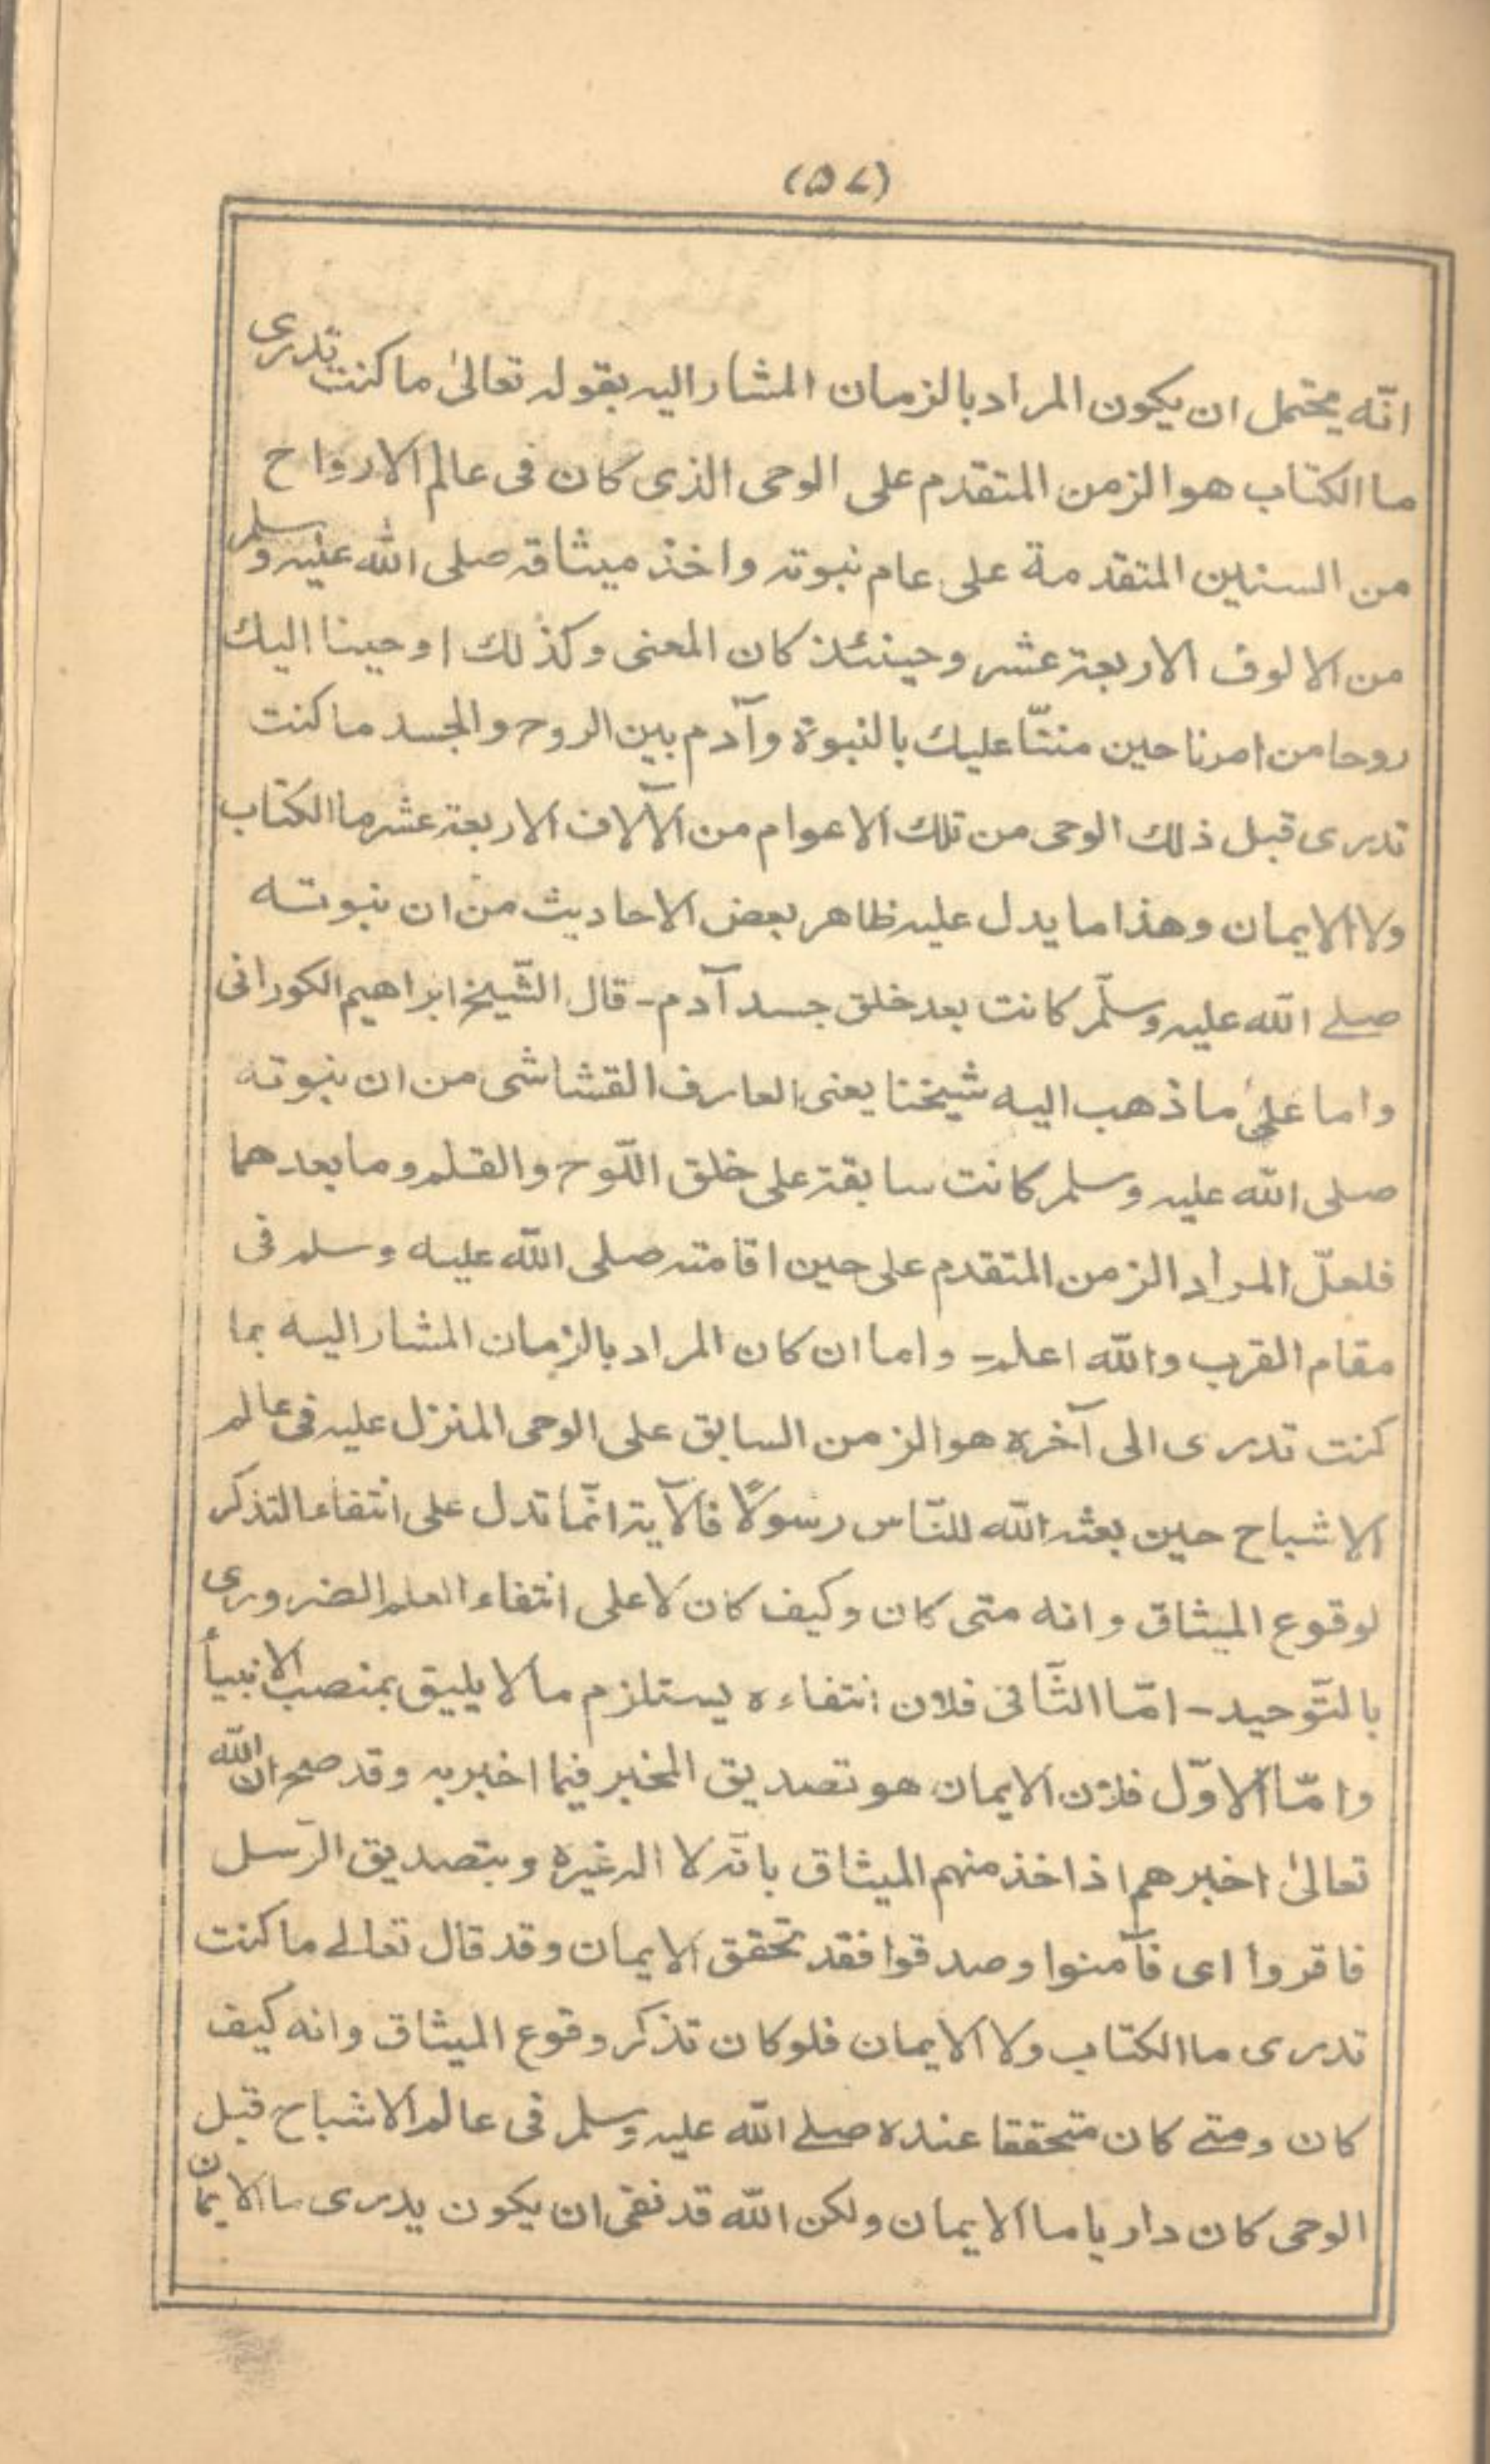 (۵۷)
انّه يحتمل ان يكون المراد بالزمان المشار اليه بقوله تعالىٰ ما كنت تدرى
ما الكتاب هو الزمن المتقدم على الوحى الذى كان فى عالم الارواح
من السنين المتقدمة على عام نبوته واخذ ميثاقه صلى الله عليه وسلم
من الالوف الاربعة عشر وحينئذ كان المعنى وكذٰلك اوحينا اليك
روحا من امرنا حين مننّا عليك بالنبوة وآدم بين الروح والجسد ما كنت
تدرى قبل ذلك الوحى من تلك الاعوام من الآلاف الاربعة عشر ما الكتاب
ولا الايمان وهذا ما يدل عليه ظاهر بعض الاحاديث من ان نبوته
صلے الله عليه وسلّم كانت بعد خلق جسد آدم - قال الشّيخ ابراهيم الكورانى
واما علىٰ ما ذهب اليه شيخنا يعنى العارف القشاشى من ان نبوته
صلى الله عليه وسلم كانت سابقة على خلق اللّوح والقلم وما بعدهما
فلعلّ المراد الزمن المتقدم على حين اقامته صلى الله عليه وسلم فى
مقام القرب والله اعلم - واما ان كان المراد بالزمان المشار اليه بما
كنت تدرى الى آخره هو الزمن السابق على الوحى المنزل عليه فى عالم
الاشباح حين بعثه الله للنّاس رسولًا فالآية انّما تدل على انتفاء التذكر
لوقوع الميثاق وانه متى كان وكيف كان لا على انتفاء العلم الضرورى
بالتّوحيد - امّا الثّانى فلان انتفاءه يستلزم ما لا يليق بمنصب الانبيأ
وامّا الاوّل فلان الايمان هو تصديق المخبر فيما اخبر به وقد صح ان الله
تعالىٰ اخبرهم اذ اخذ منهم الميثاق بانّه لا اله غيره وبتصديق الرّسل
فاقروا اى فآمنوا وصدقوا فقد تحقق الايمان وقد قال تعالے ما كنت
تدرى ما الكتاب ولا الايمان فلو كان تذكر وقوع الميثاق وانه كيف
كان ومتے كان متحققا عنده صلے الله عليه وسلم فى عالم الاشباح قبل
الوحى كان داريا ما الايمان ولكن الله قد نفى ان يكون يدرى ما الايمان